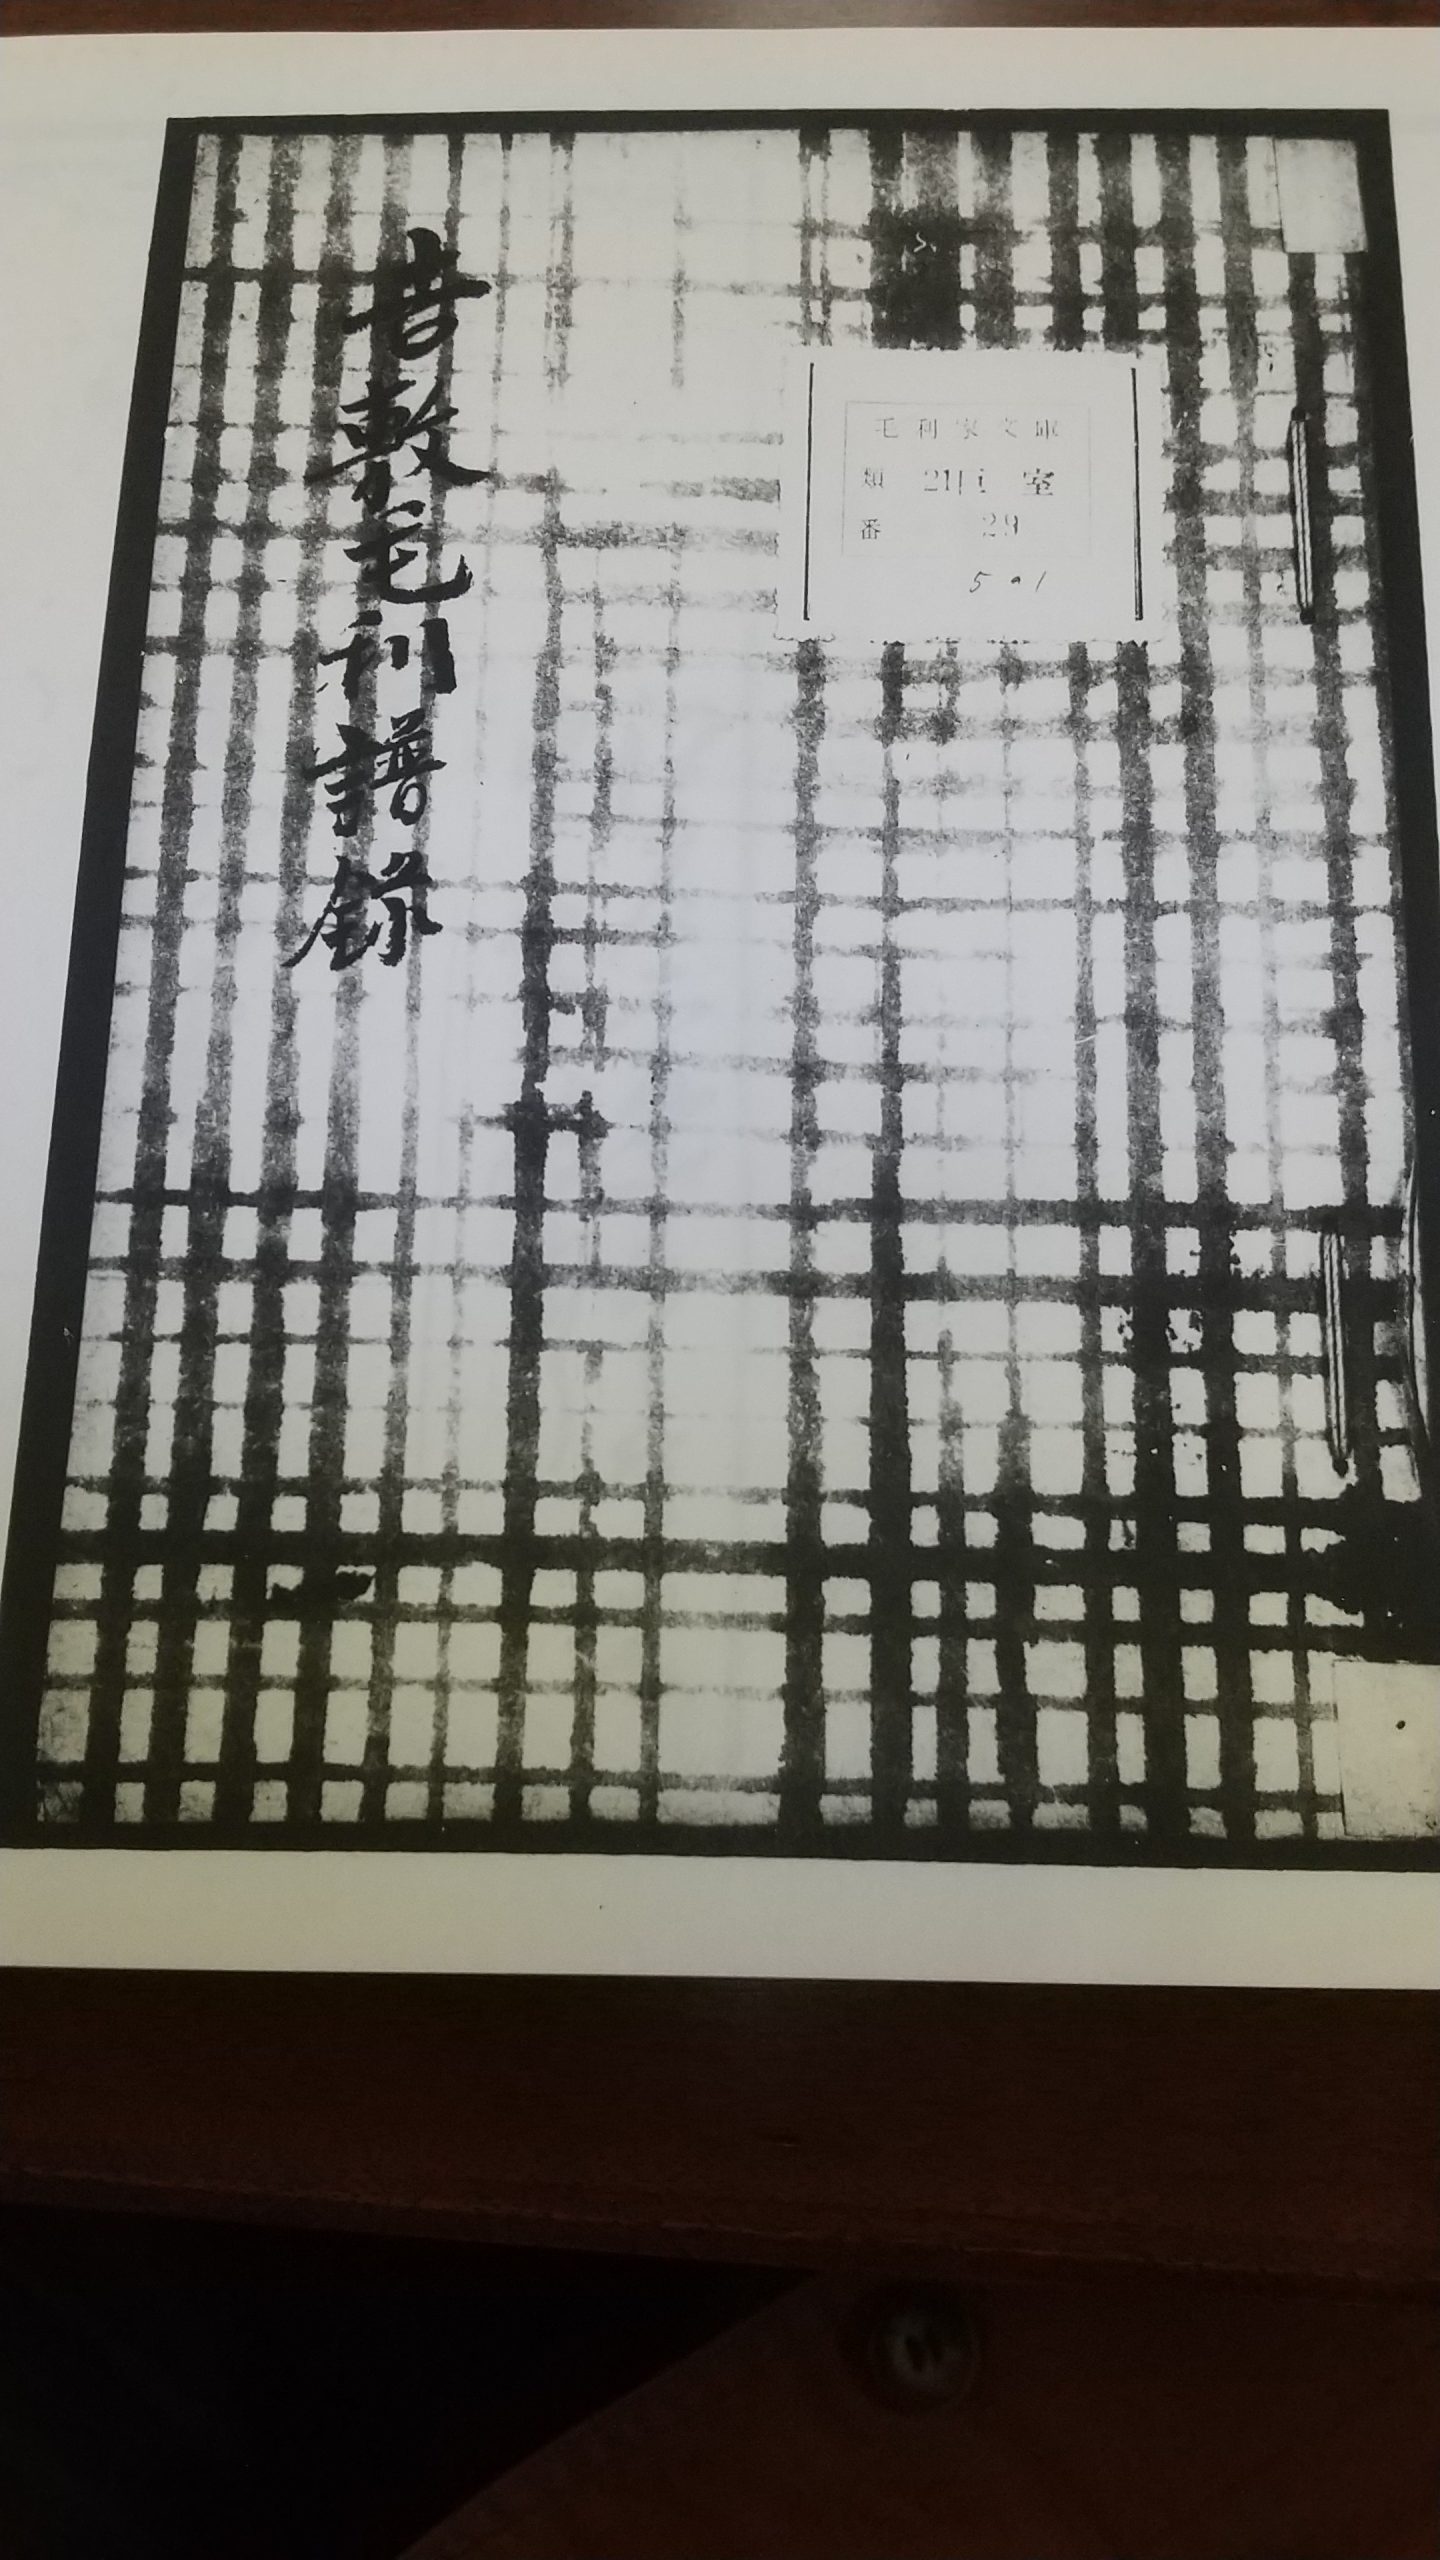 毛利家文庫
類 21巨室
番 29
5の1
吉敷毛利譜録
一